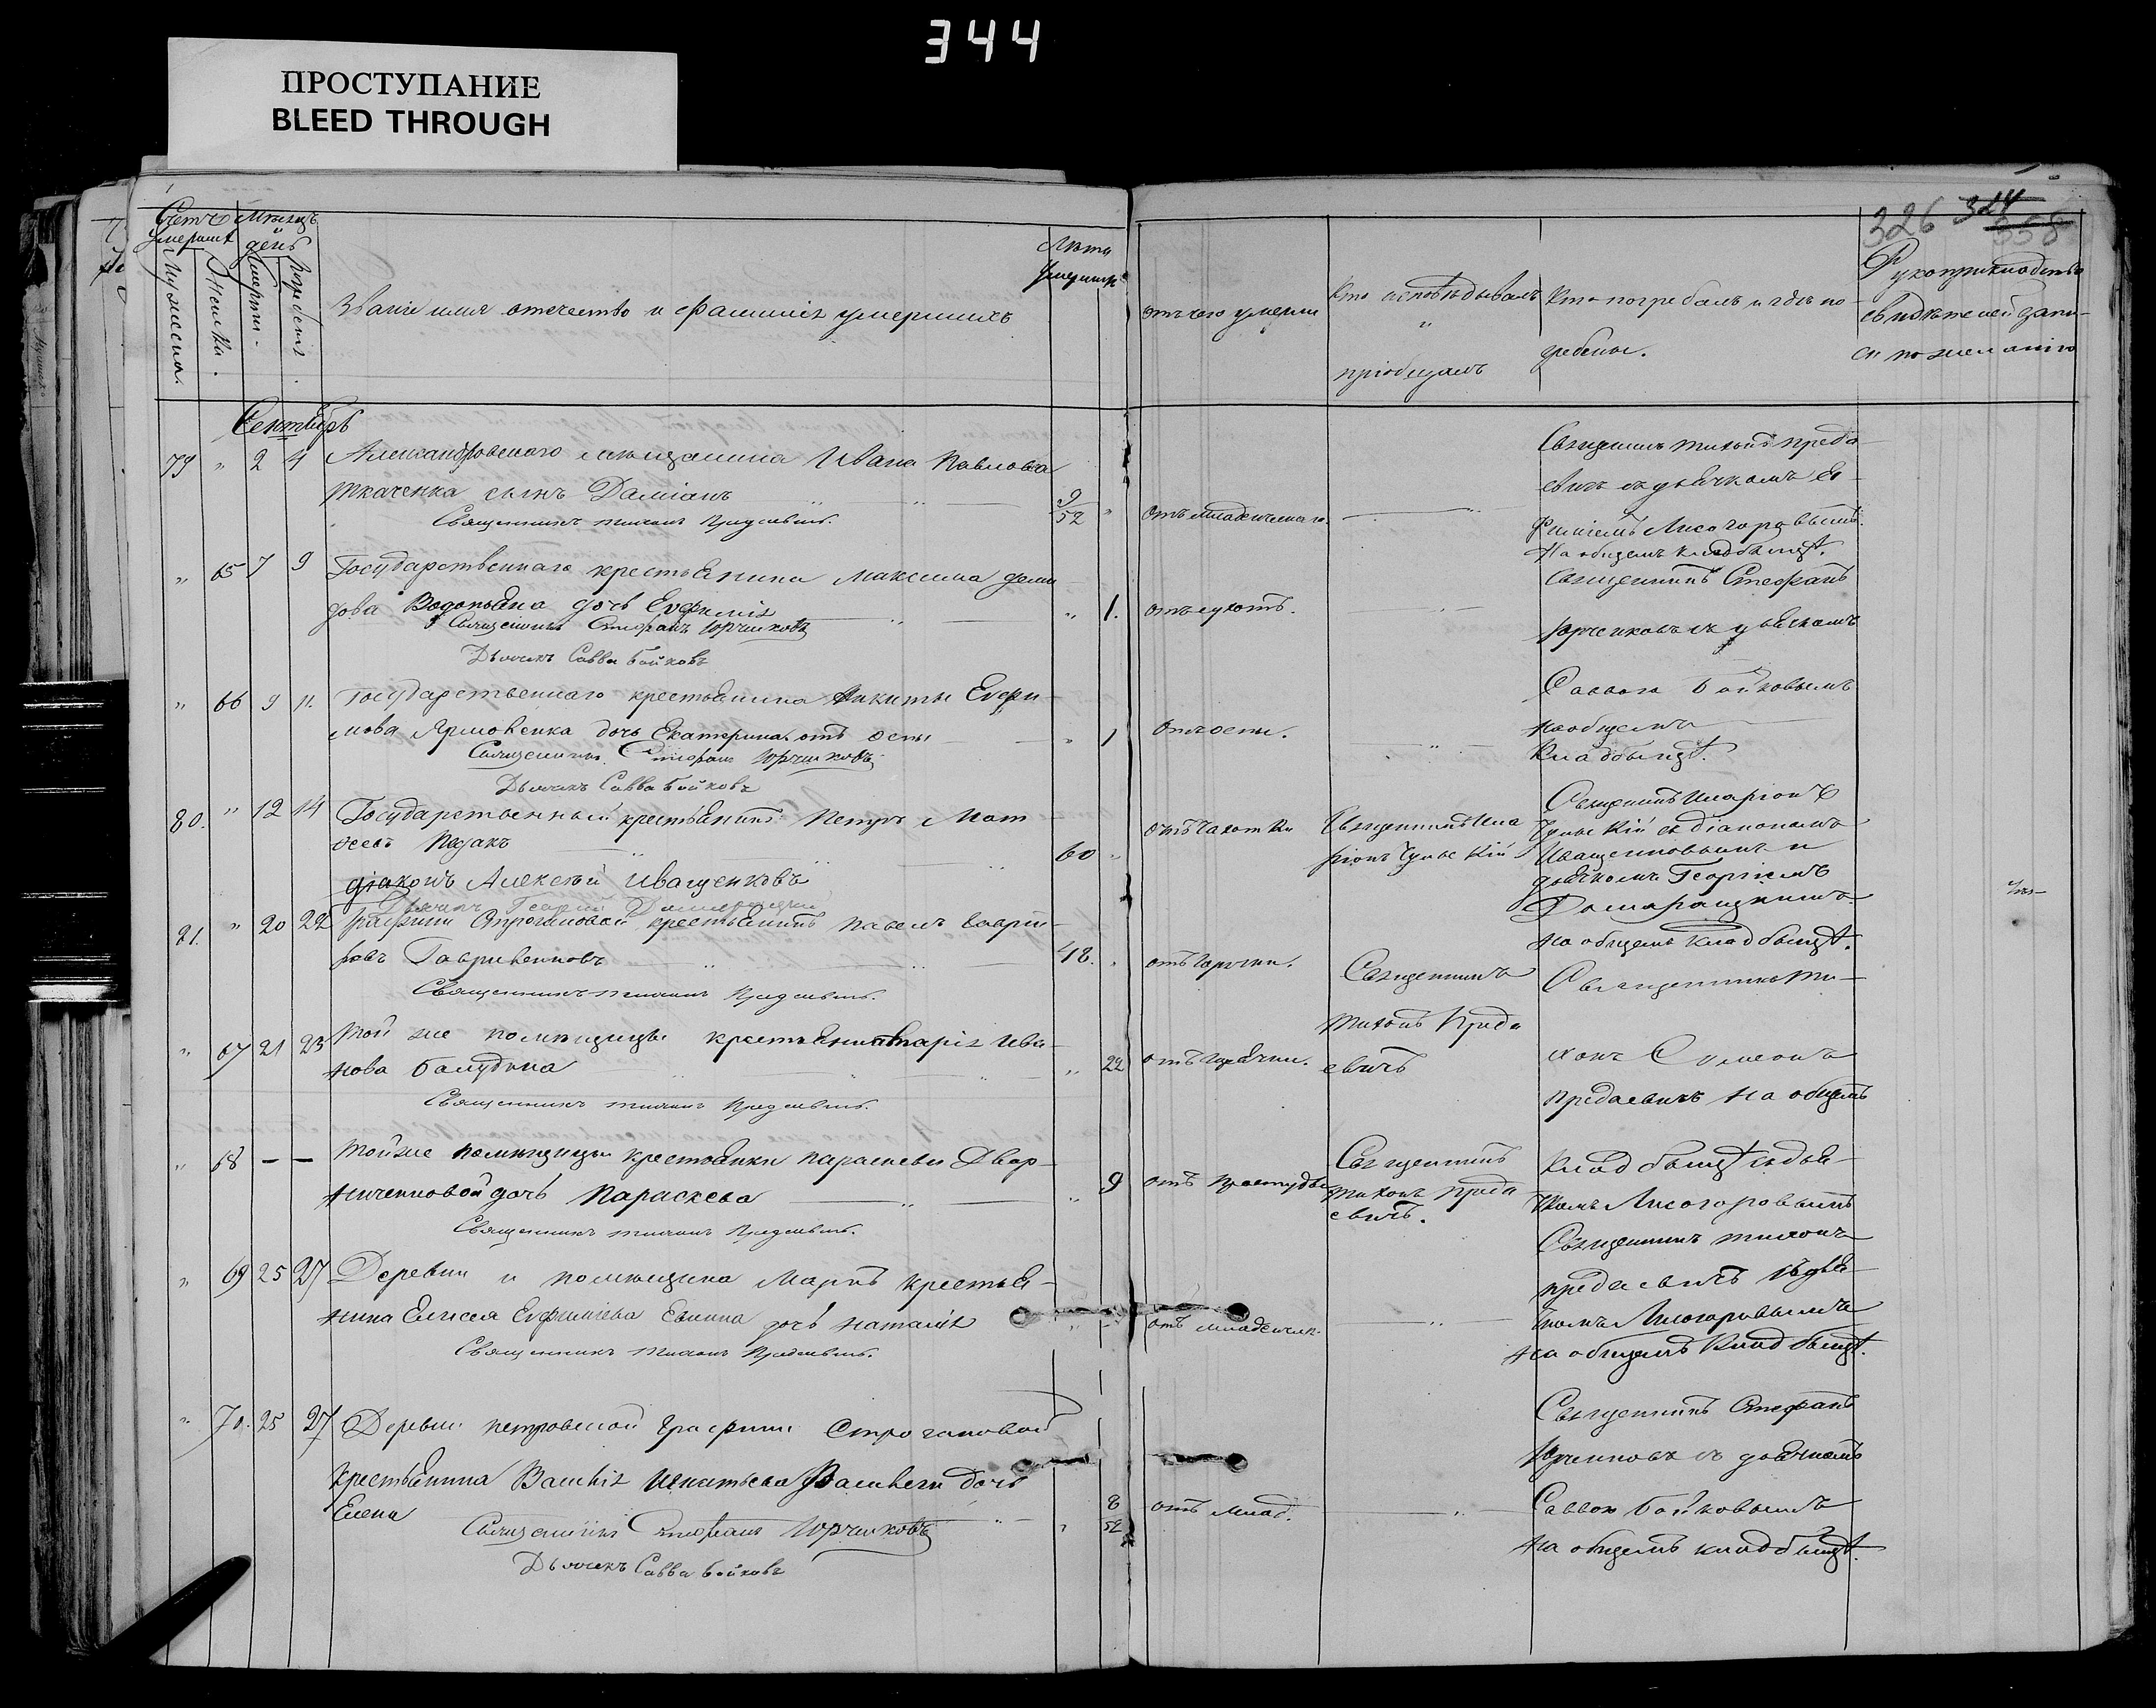 344
ПРОСТУПАНИЕ
BLEED THROUGH
326 324 358
Счетъ умершихъ
Мужеска.
Женска.
Мѣсяцъ и день
Смерти.
Погребенія.
Званіе имя отечество и фамилія умершихъ
Лѣта умершихъ
отъ чего умерли
Кто исповѣдывалъ и пріобщалъ
Кто погребалъ и гдѣ погребены.
Рукоприкладство свидѣтелей записи по желанію
Сентябрь
79 " 2 4 Александровскаго мѣщанина Ивана Павлова
Ткаченка сынъ Даміанъ 9/52 " отъ младенческаго
Священникъ Тихонъ Предаевичъ.
Священникъ Тихонъ Преда-
евичъ съ дьячкомъ Ев-
фиміемъ Лисогоровымъ.
На общемъ кладбищѣ.
" 65 7 9 Государственнаго крестьянина Максима Деми-
дова Водопьяна дочь Евфимія " 1. отъ сухотъ.
Священникъ Стефанъ Юрченковъ
Дьячекъ Савва Бойковъ
Священникъ Стефанъ
Юрченковъ съ дьячкомъ
" 66 9 11. Государственнаго крестьянина Никиты Ефи-
мова Ярмовенка дочь Екатерина отъ оспы " 1 отъ оспы.
Священникъ Стефанъ Юрченковъ
Дьячекъ Савва Бойковъ
Саввою Бойковымъ
на общемъ
кладбищѣ.
80. " 12 14 Государственный крестьянинъ Петръ Мат-
веевъ 60 " отъ чахотки
Діаконъ Алексѣй Иващенковъ
Дьячекъ Георгій
Священникъ Ила-
ріонъ
Священникъ Иларіонъ
съ діакономъ
Иващенковымъ и
дьячкомъ Георгіемъ
на общемъ кладбищѣ.
81. " 20 22 Графини Строгоновой крестьянинъ Павелъ Гаври-
ловъ Гавриленковъ 48. " отъ горячки.
Священникъ Тихонъ Предаевичъ.
Священникъ
Тихонъ Преда-
евичъ
Священникъ Ти-
хонъ Симеонъ
Предаевичъ на общемъ
" 67 21 23 Той же помѣщицы крестьянинка Марія Ива-
нова " 22 отъ горячки.
Священникъ Тихонъ Предаевичъ.
" 68 — — Той же помѣщицы крестьянки Параскевы Двор-
ниченковой дочь Параскева " 9 отъ простуды
Священникъ Тихонъ Предаевичъ.
Священникъ
Тихонъ Преда-
евичъ.
кладбищѣ съ дья-
чкомъ Лисогоровымъ
" 69 25 27 Деревни и помѣщика Маркъ крестья-
нина Елисея Евфиміева дочь Наталія " отъ младенческ.
Священникъ Тихонъ Предаевичъ.
Священникъ Тихонъ
Предаевичъ съ дья-
чкомъ Лисогоровымъ
на общемъ кладбищѣ.
" 70. 25 27 Деревни Петровской Графини Строгановой
крестьянина Василія Игнатьева дочь
Елена " 8/52 отъ млад.
Священникъ Стефанъ Юрченковъ
Дьячекъ Савва Бойковъ
Священникъ Стефанъ
Юрченковъ съ дьячкомъ
Саввою Бойковымъ
на общемъ кладбищѣ.